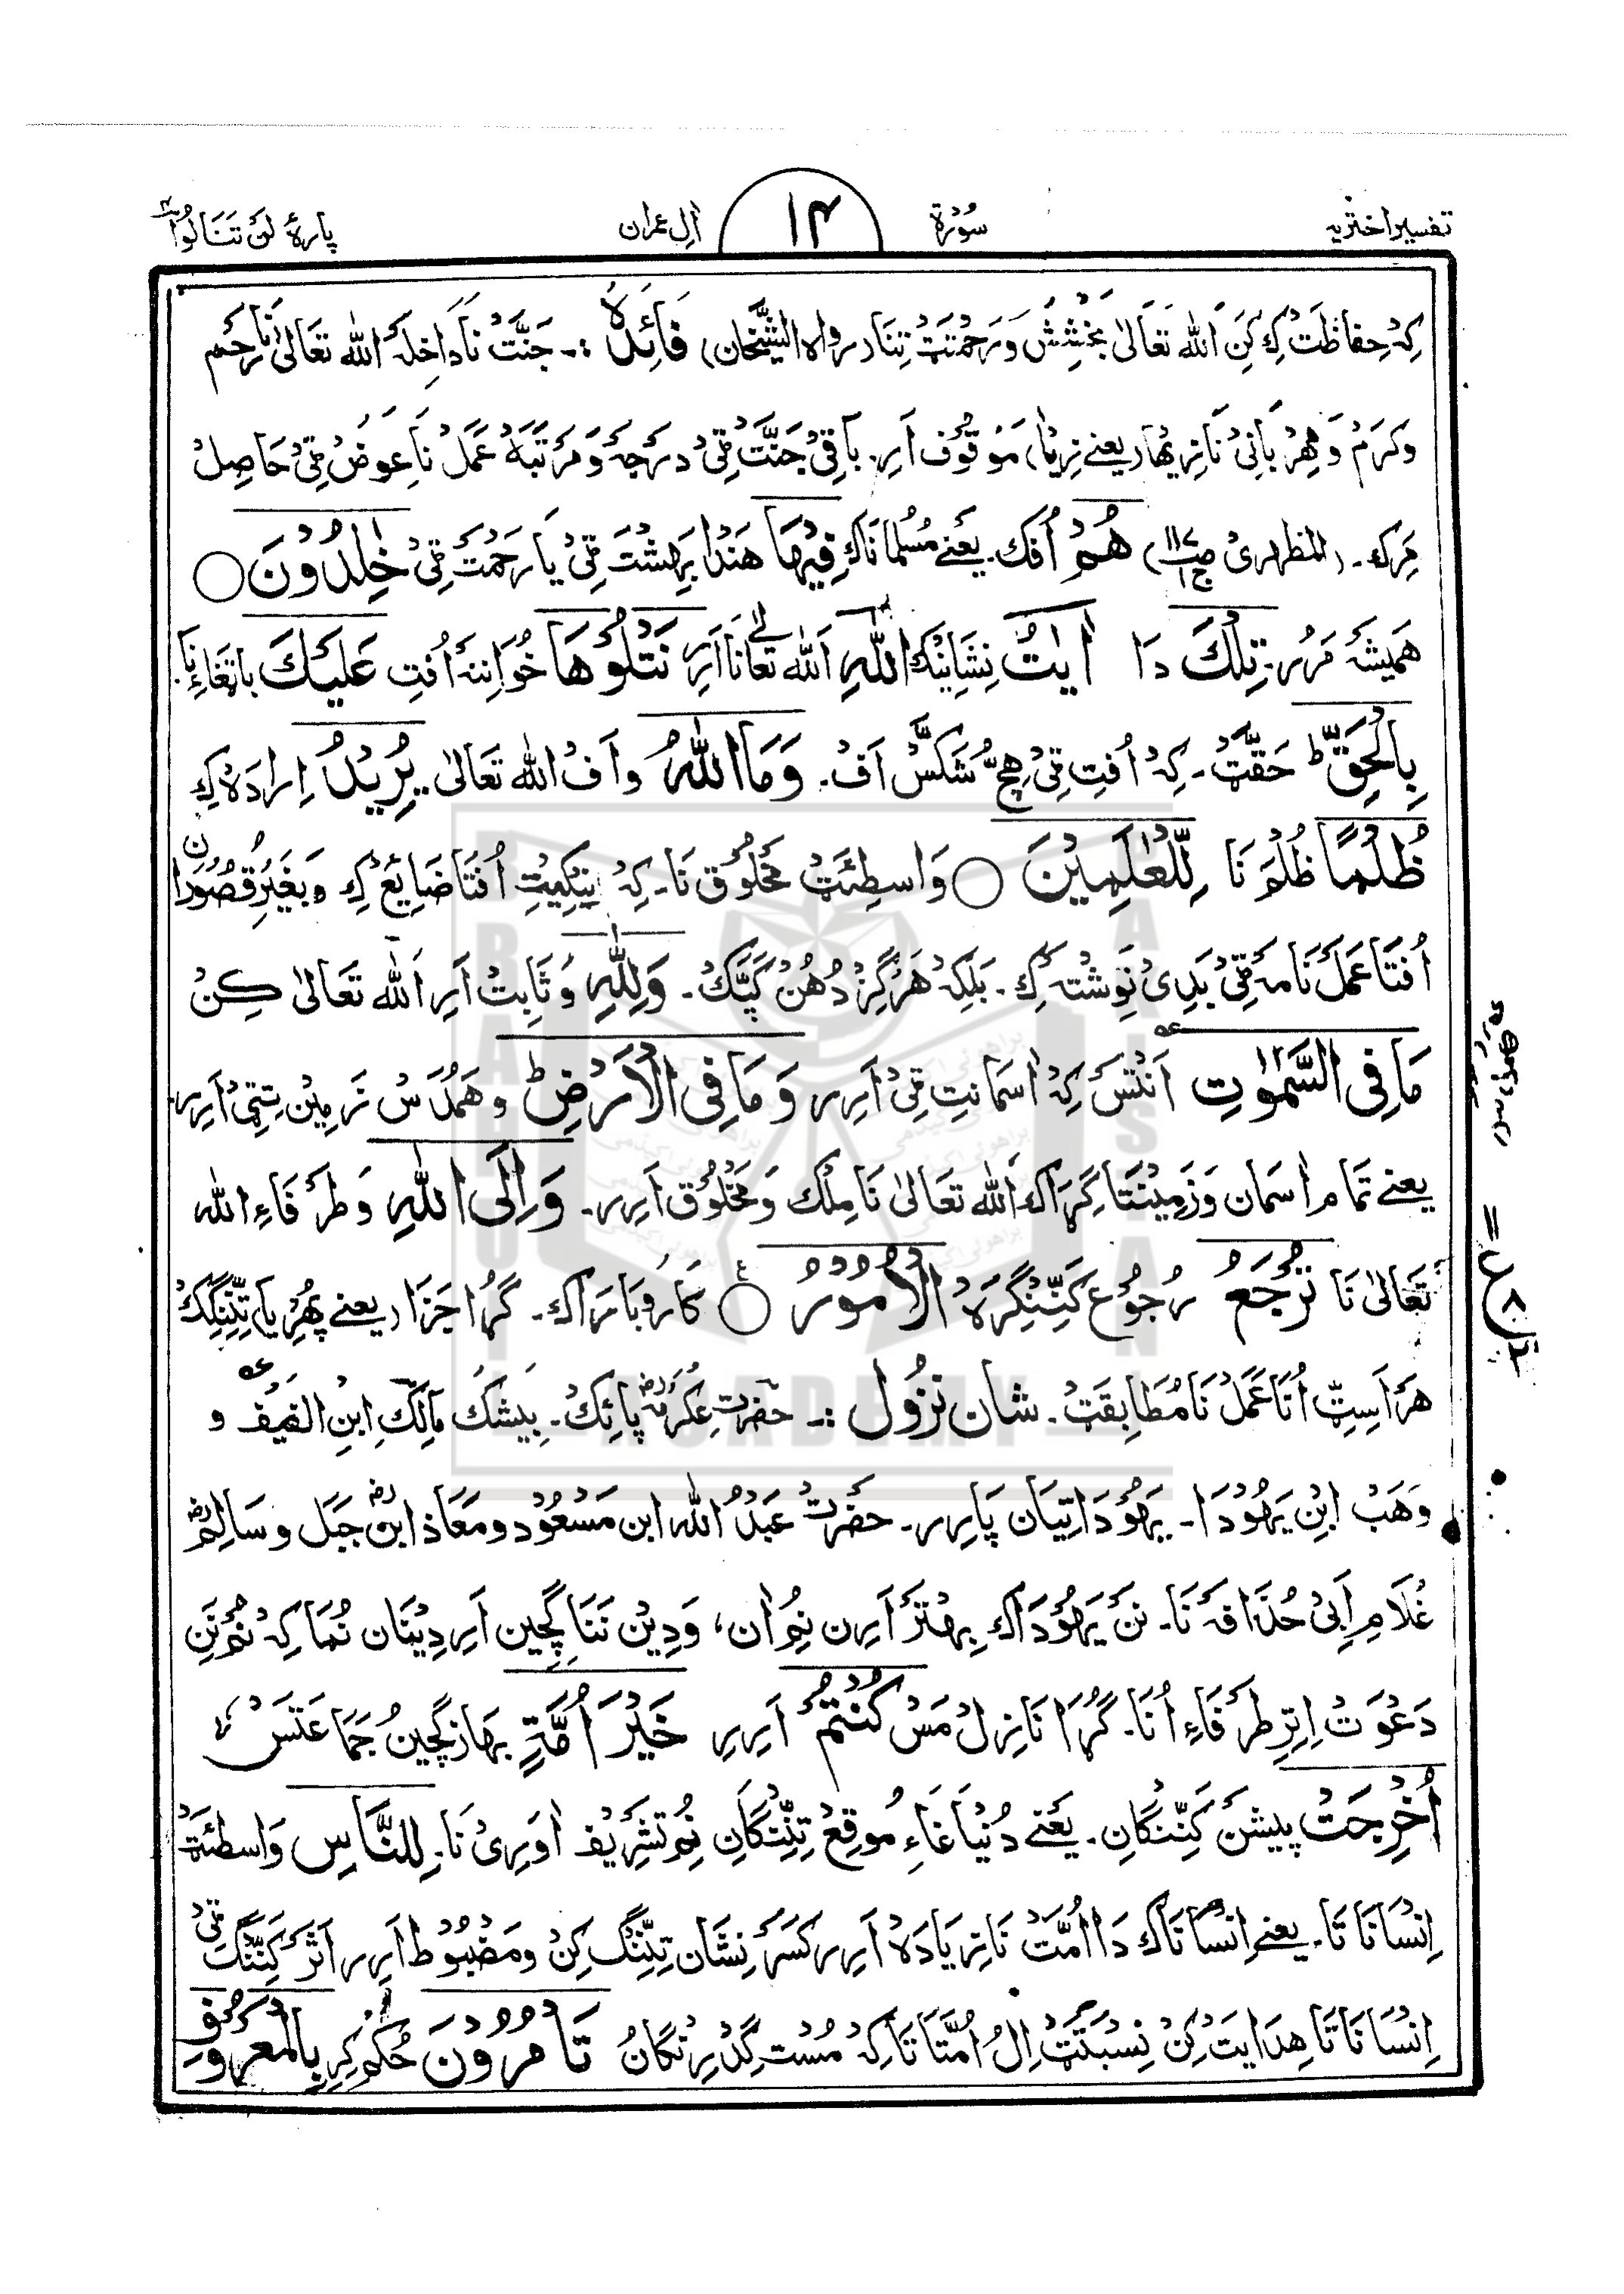 تفسیر اختریہ سُوْرَۃ ۱۴ اٰلِ عمران پارۂ لَنْ تَنَالُوْا
کِہْ حِفاظَتْ کِ کَنِ اَللہ تَعَالیٰ بَخْشِشْ وَرَحْمَتَہْتِنَا (رواہ الشیخان) فَائِدَہ :۔ جَنَّتْ نَا دَاخِلَہ اَللہ تَعَالیٰ نَا رَحَم
وَکَرَمْ وَمِہْرْبَانِیْ نَا زِیْہَا (یعنے زِیْہا) مَوْقُوْف اَرِ۔ بَاقِیْ جَنَّتْ ٹِیْ دَرَجَہْ وَمَرْتَبَہْ عَمَلْ نَا عِوَضْ ٹِیْ حَاصِلْ
مَرِک۔ (المظہری ص۱۱۷ ج۱) هُمْ اُفَک۔ یَعْنے مُسُلمانَاک فِیْهَا هَنْدَا بَہِشْتَ ٹِیْ یَا رَحْمَتْ ٹِیْ خٰلِدُوْنَ ○
هَمِیْشَہ مَرُر۔ تِلْكَ دَا اٰیٰتُ نِشَانِیْک اللّٰهِ اَللہ تَعَالیٰ نَا اَرِر نَتْلُوْهَا خُوَانِنَہ اُفْتِ عَلَیْكَ بَاتَغَاءِ نَا۔
بِالْحَقِّ ؕ حَقَّتْ۔ کِہْ اُفْتِ ٹِیْ هِچّ شَکَسْ اَفْ۔ وَمَا اللّٰهُ وَاَفْ اَللہ تَعَالیٰ یُرِیْدُ اِرَادَہْ کِ
ظُلْمًا ظُلْمَ نَا لِّلْعٰلَمِیْنَ ○ وَاسِطَئَتْ مَخْلُوْق نَا۔ کِہْ نِیْکِیْتِ اُفْتَا ضَایِعْ کِ وبَغَیْرِ قُصُوْرَان
اُفْتَا عَمَلْ نَامَہ ٹِیْ بَدِیْ نَوِشْتَہ کِ۔ بَلْکِہْ هَرْگِزْ دُهُنْ کَپَّکْ۔ وَلِلّٰهِ وَثَابِتْ اَرِ اَللہ تَعَالیٰ کِنْ
مَا فِی السَّمٰوٰتِ اَنْتَسْ کِہْ اٰسْمَانتِ ٹِیْ اَرِر وَمَا فِی الْاَرْضِ ؕ وهَمُدَسْ زَمِیْن تِیْٹِیْ اَرِر۔
یعنے تَمَام اٰسْمَان وَزَمِیْنْتَا گِڑَاک اَللہ تَعَالیٰ نَا مِلْک وَمَخْلُوْق اَرِر۔ وَاِلَی اللّٰهِ وَطَرَفَاءِ اللہ
تَعَالیٰ نَا تُرْجَعُ رُجُوْع کَنِّنْگِرَہْ الْاُمُوْرُ ○ کَارُوبَارَاک۔ گُڑَا جَزَا (یعنے پھِرِیا) تِنِّنْگِک
هَرَاسِٹّ اُنَا عَمَلْ نَا مُطَابِقَتْ۔ شان نزُوْل :۔ حضرت عِکْرَمَہؓ پَائِک۔ بِیْشَکْ مَالِکِ ابْنِ الضیف و
وَهَبْ ابْنِ یَہُوْدَا۔ یَہُوْدَاتِیَان پَارِر۔ حَضْرَتْ عَبْدُ اللہ ابن مَسْعُوْد ومعَاذ ابن جَبَل وسَالِم
غُلَامِ اَبِیْ حُذَافَہ نَا۔ نَنْ یَہُوْدَاک بِہْتَر اَرِن نُمْ اٰن، وَدِیْن نَنَا گِچِین اَرِ دِیْنَان نُمَا کِہْ نُمْ نَنِ
دَعْوَتْ اِرِرِ طَرَفَاءِ اُنَا۔ گُڑَا نَازِلْ مَسْ کُنْتُمْ اَرِرِ خَیْرَ اُمَّةٍ بھَاز گِچِینُ جَمَاعَتَسْ
اُخْرِجَتْ پیشَنْ کَنِّنْگان۔ یَعْنے دُنیَاغَاءِ مُوقِعْ تِنِّنْگان نُمْ تَشْرِیْف اٰوَرِیْ نَا۔ لِلنَّاسِ وَاسِطَئَتْ
اِنْسَانَا تَا۔ یعنے اِنْسَانَاک دَا اُمَّتْ نَا زِیَادَہْ اَرِر کَسَرْ نِشَان تِنِّنْگ کِنْ ومَضْبُوْط اَرِر اَثَرْ کَنِّنْگ ٹِیْ
اِنْسَانَا تَا هِدَایَتْ کِنْ نِسْبَتَتْ اِلُ اُمَّتَاتَا کِہْ مُسْتْ گِدْرِنْگان تَاْمُرُوْنَ حُکْم کِرِ بِالْمَعْرُوْفِ